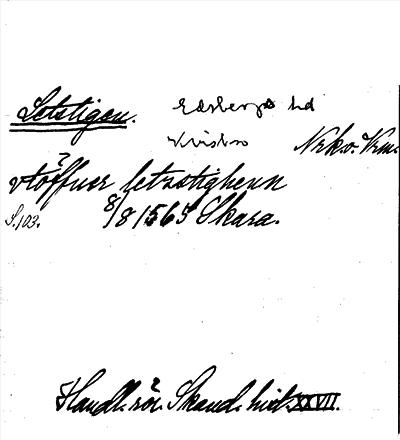 Letstigen. Edsbergs hd
Kvistbro Nrk o. Vrm.
vtöffuer letzstighenn
S. 103. 8/8 1565 Skara.
Handl. rör. Skand. hist. XXVII.